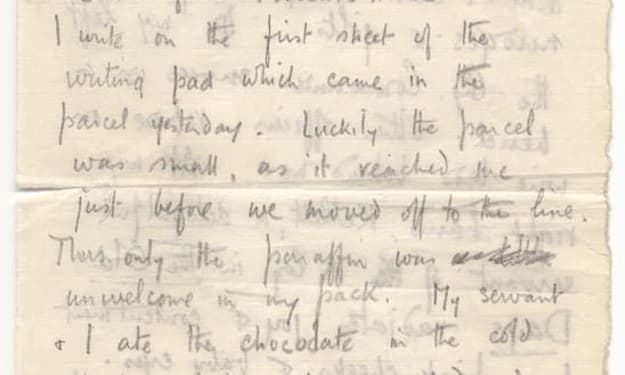 I write on the first sheet of the
writing pad which came in the
parcel yesterday. Luckily the parcel
was small, as it reached me
just before we moved off to the line.
Thus only the paraffin was
unwelcome in my pack. My servant
& I ate the chocolate in the cold